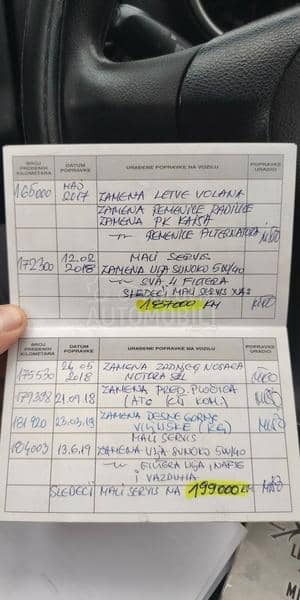 BROJ PREĐENIH KILOMETARA DATUM POPRAVKE URAĐENE POPRAVKE NA VOZILU POPRAVKU URADIO
165000 MAJ 2017 ZAMENA LETVE VOLANA
ZAMENA REMENICE RADILICE
ZAMENA PK KAIŠA
REMENICE ALTERNATORA
172300 12.02 2018 MALI SERVIS
ZAMENA ULJA SUNOKO 5W40
SVA 4 FILTERA
SLEDEĆI MALI SERVIS NA
187000 KM
BROJ PREĐENIH KILOMETARA DATUM POPRAVKE URAĐENE POPRAVKE NA VOZILU POPRAVKU URADIO
175530 24.05 2018 ZAMENA ZADNJEG NOSAČA
MOTORA
179388 21.09.18 ZAMENA PRED. PLOČICA
(ATE KOM.)
181920 23.03.19 ZAMENA DESNE GORNJE
VILJUŠKE
MALI SERVIS
184003 13.6.19 ZAMENA ULJA SUNOKO 5W40
FILTERA ULJA, NAFTE
I VAZDUHA
SLEDEĆI MALI SERVIS NA 199000 KM